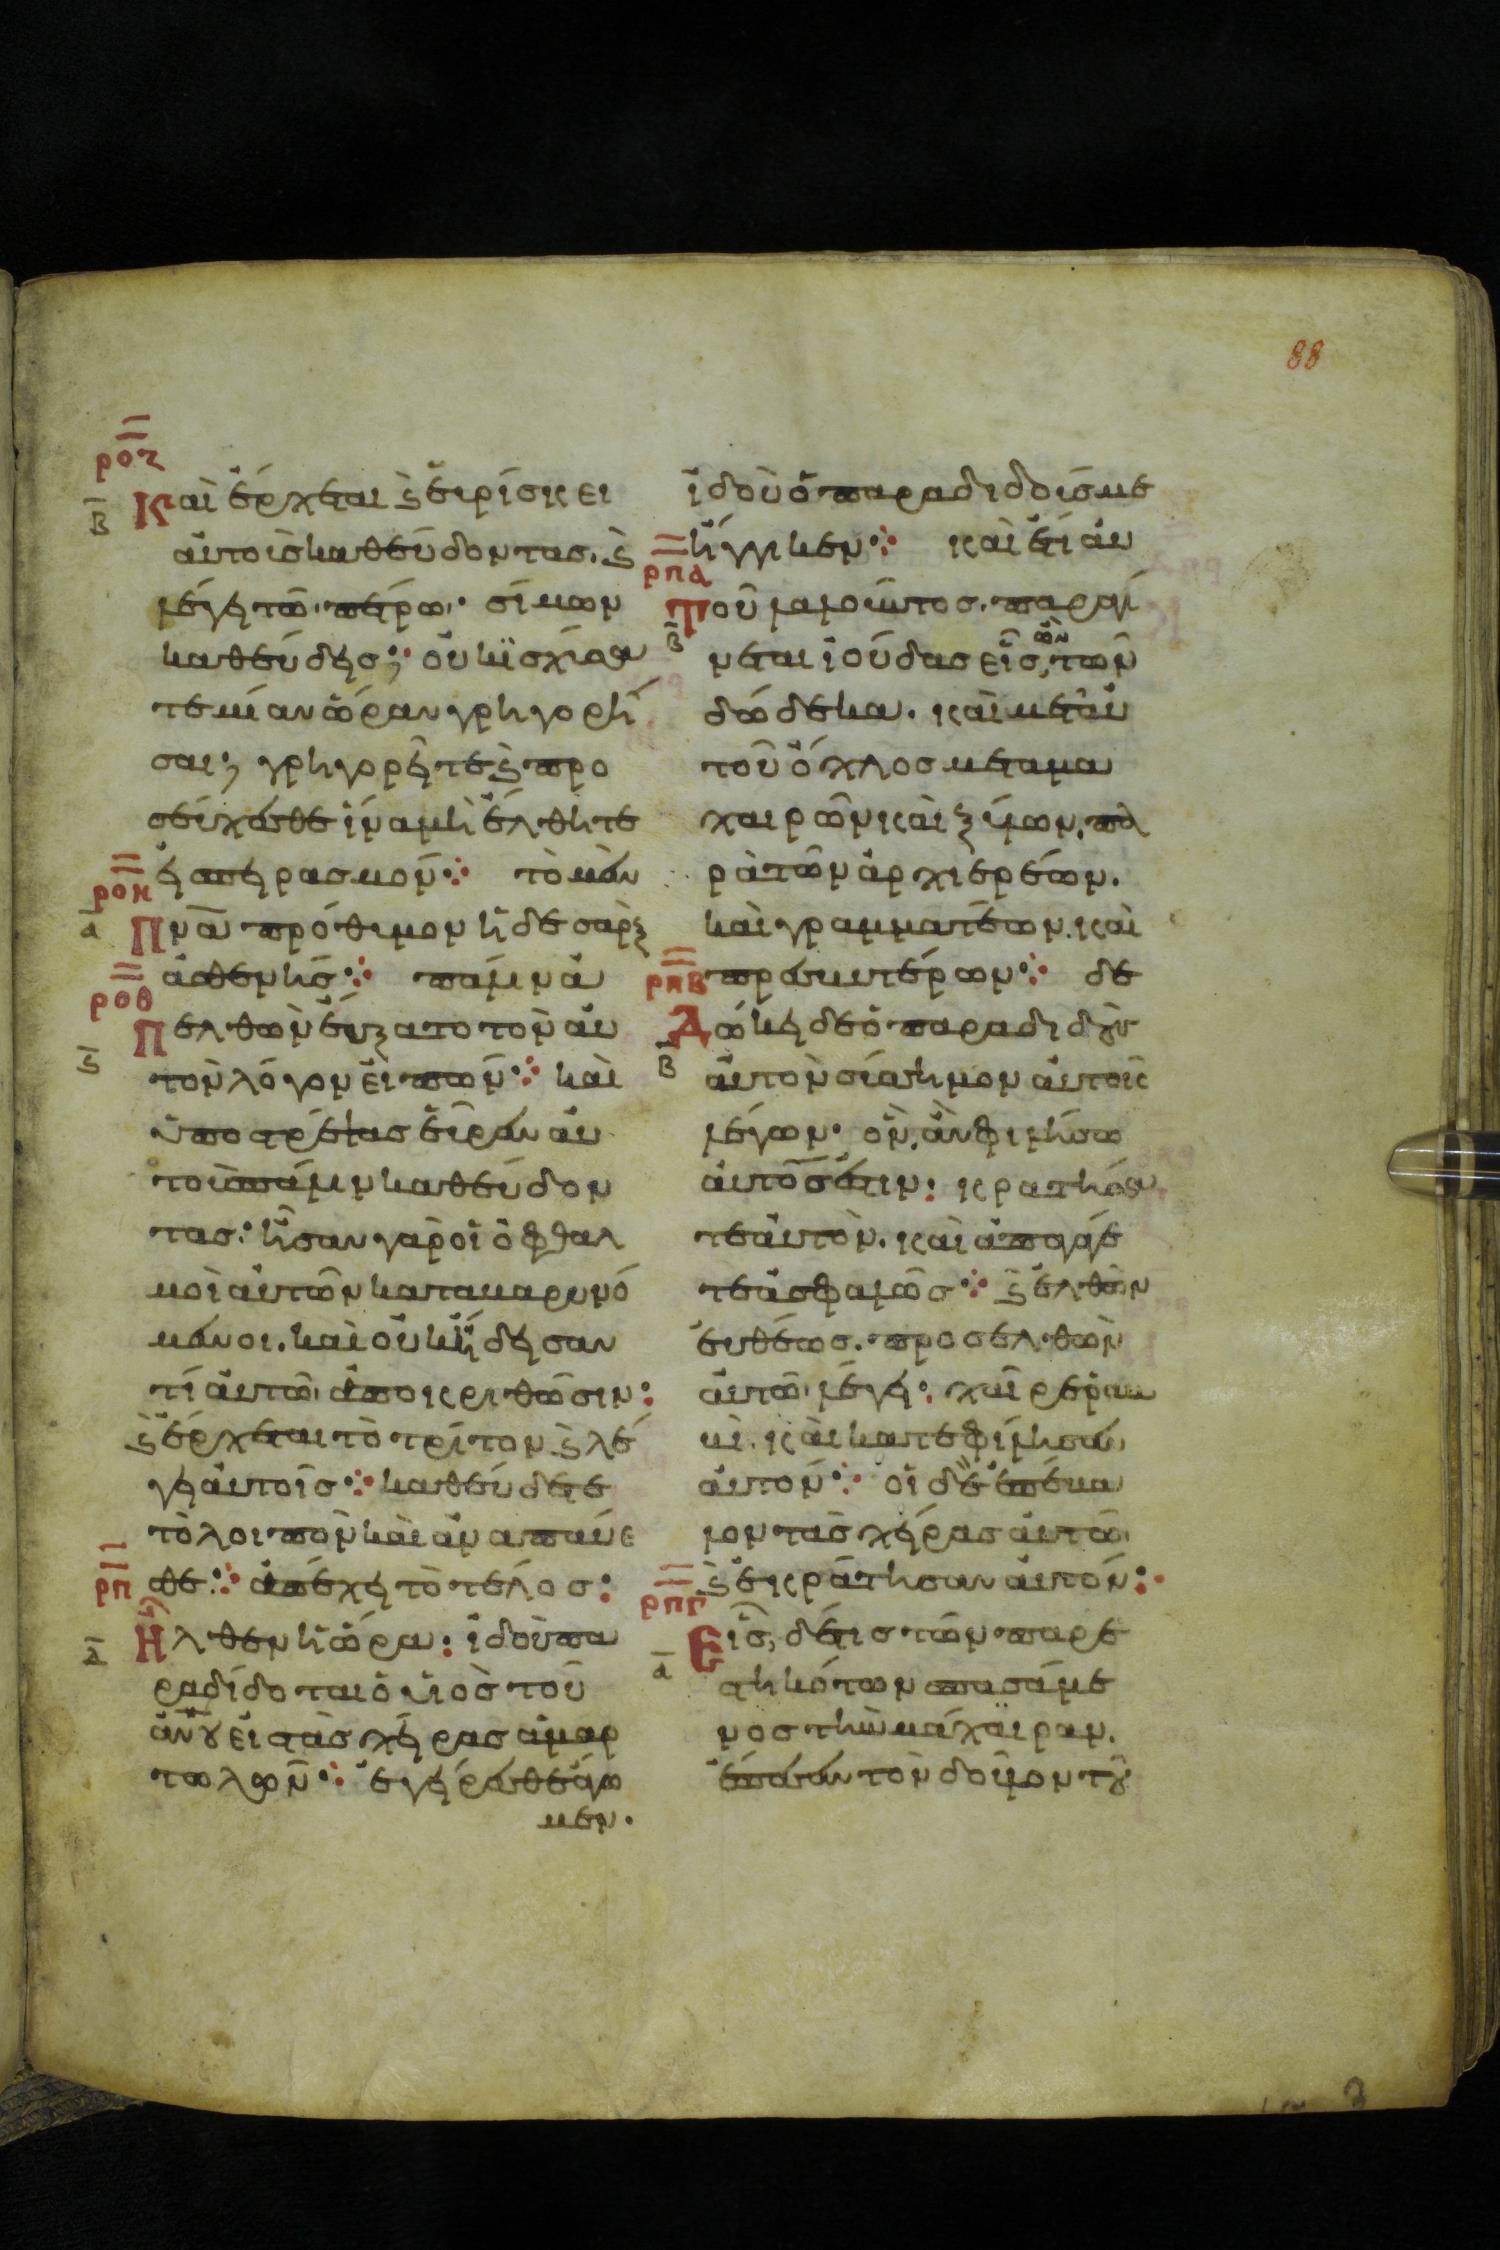 88
ροζ
β Καὶ ἔρχεται ϗ εὑρίσκει
αὐτοὺς καθεύδοντας. ϗ
λέγει τῶ πέτρω· σίμων
καθεύδεις; οὐκ ἰσχύσα
τε μίαν ὥραν γρηγορῆ
σαι; γρηγορεῖτε ϗ προ
σεύχεσθε ἵνα μὴ ἔλθητε
εἰς πειρασμόν: τὸ μὲν
ροη
α Πνα πρόθυμον ἡ δὲ σὰρξ
ἀσθενής: πάλιν ἀ
ροθ
ϛ Πελθὼν εὔξατο τὸν αὐ
τὸν λόγον εἰπών: καὶ
ὑποστρέψας εὗρεν αὐ
τοὺς πάλιν καθεύδον
τας: ἦσαν γὰρ οἱ ὀφθαλ
μοὶ αὐτῶν καταβαρυνό
μενοι. καὶ οὐκ ἤδεισαν
τί αὐτῶ ἀποκριθῶσιν:
ϗ ἔρχεται τὸ τρίτον ϗ λέ
γει αὐτοῖς: καθεύδετε
τὸ λοιπὸν καὶ ἀναπαύε
σθε: ἀπέχει τὸ τέλος:
ρπ
δ Ηλθεν ἡ ὥρα: ἰδοὺ πα
ραδίδοται ὁ υἱὸς τοῦ
ἀνου εἰς τὰς χεῖρας ἁμαρ
τωλῶν: ἐγείρεσθε ἄγω
μεν.
ἰδοὺ ὁ παραδιδούς με
ἤγγικεν: καὶ ἔτι αὐ
ρπα
β Τοῦ λαλοῦντος. παραγί
νεται ἰούδας εἷς ὢν τῶν
δώδεκα. καὶ μετ' αὐ
τοῦ ὄχλος μετὰ μα
χαιρῶν καὶ ξύλων. πα
ρὰ τῶν ἀρχιερέων.
καὶ γραμματέων. καὶ
πρεσβυτέρων: δε
ρπβ
β Δώκει δὲ ὁ παραδιδοὺς
αὐτὸν σύσσημον αὐτοῖς
λέγων· ὃν ἂν φιλήσω
αὐτός ἐστιν: κρατήσα
τε αὐτὸν. καὶ ἀπαγάγε
τε ἀσφαλῶς: ϗ ἐλθὼν
εὐθέως. προσελθὼν
αὐτῶ λέγει: χαῖρε ῥαβ
βὶ. καὶ κατεφίλησεν
αὐτόν: οἱ δὲ ἐπέβα
λον τὰς χεῖρας αὐτῶ
ϗ ἐκράτησαν αὐτόν:
ρπγ
α Εἷς δέ τις τῶν παρε
στηκότων σπασάμε
νος τὴν μάχαιραν.
ἔπαισεν τὸν δοῦλον τοῦ